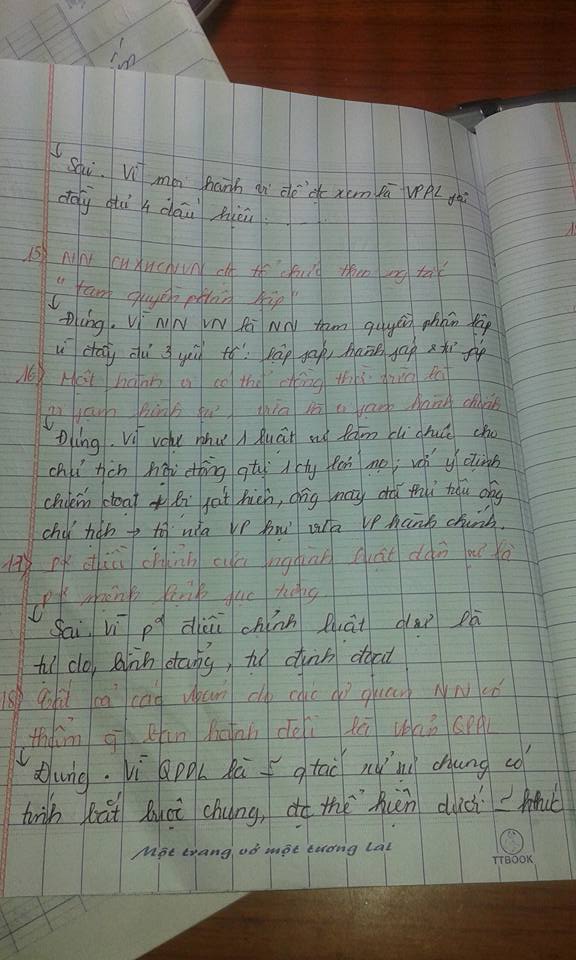 Sai. Vì mọi hành vi để đc xem là VPPL phải
đầy đủ 4 dấu hiệu
15) NN CHXHCNVN đc tổ chức theo ng tắc
"tam quyền phân lập"
Đúng. Vì NN VN là NN tam quyền phân lập
vì đầy đủ 3 yếu tố: lập páp, hành páp & tư páp
16) Một hành vi có thể đồng thời vừa là
vi pạm hình sự vừa là vi pạm hành chính
Đúng. Vì vdụ như 1 luật sư làm di chúc cho
chủ tịch hội đồng qtrị 1 cty lớn nọ; với ý định
chiếm đoạt bị pát hiện, ông này đã thủ tiêu ông
chủ tịch → vừa VP hsự vừa VP hành chính.
17) p² điều chỉnh của ngành luật dân sự là
p² mệnh lệnh pục tùng
Sai. Vì p² điều chỉnh luật dsự là
tự do, bình đẳng, tự định đoạt
18) Tất cả các vbản do các cơ quan NN có
thẩm q ban hành đều là vbản QPPL
Đúng. Vì QPPL là qtắc xử sự chung có
tính bắt buộc chung, đc thể hiện dưới hthức
Một trang vở một tương lai
TTBOOK